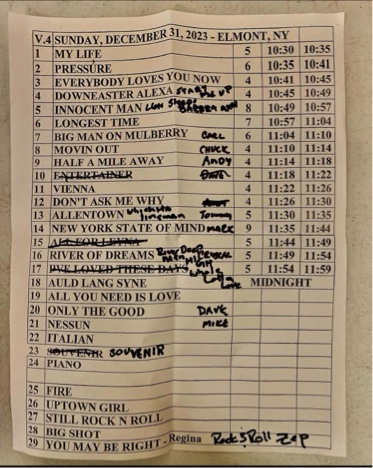 V.4 SUNDAY, DECEMBER 31, 2023 - ELMONT, NY
1 MY LIFE 5 10:30 10:35
2 PRESSURE 6 10:35 10:41
3 EVERYBODY LOVES YOU NOW 4 10:41 10:45
4 DOWNEASTER ALEXA START ME UP 4 10:45 10:49
5 INNOCENT MAN LION SLEEPS BARBARA ANN 8 10:49 10:57
6 LONGEST TIME 7 10:57 11:04
7 BIG MAN ON MULBERRY CARL 6 11:04 11:10
8 MOVIN OUT CHUCK 4 11:10 11:14
9 HALF A MILE AWAY ANDY 4 11:14 11:18
10 ENTERTAINER DAVE 4 11:18 11:22
11 VIENNA 4 11:22 11:26
12 DON'T ASK ME WHY 4 11:26 11:30
13 ALLENTOWN Wichita lineman Tommy 5 11:30 11:35
14 NEW YORK STATE OF MIND MARK 9 11:35 11:44
15 ALL FOR LEYNA 5 11:44 11:49
16 RIVER OF DREAMS River Deep 5 11:49 11:54
17 I'VE LOVED THESE DAYS Whole Lotta Love 5 11:54 11:59
18 AULD LANG SYNE MIDNIGHT
19 ALL YOU NEED IS LOVE
20 ONLY THE GOOD DAVE
21 NESSUN MIKE
22 ITALIAN
23 SOUVENIR SOUVENIR
24 PIANO
25 FIRE
26 UPTOWN GIRL
27 STILL ROCK N ROLL
28 BIG SHOT
29 YOU MAY BE RIGHT - Regina Rock & Roll ZEP